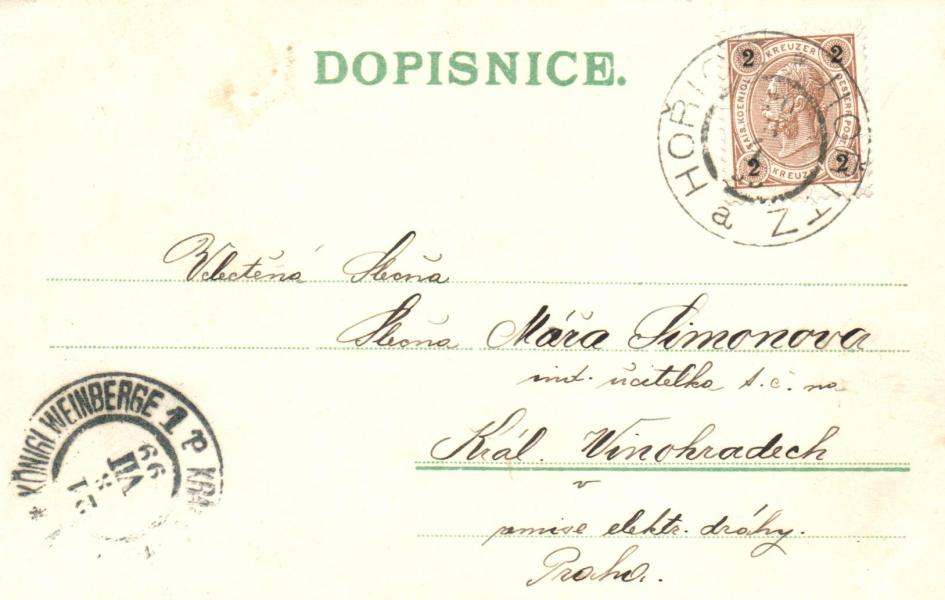 DOPISNICE.
2 KREUZER 2
KAIS. KOENIGL. OESTERR. POST.
2 KREUZER 2
HOŘIC
HOŘITZ a
Velectěná Slečna
Slečna Máňa Šimonova
ind. učitelka t. č. na
Král. Vinohradech
v
remise elektr. dráhy.
Praha.
* KÖNIGL WEINBERGE 1
99
VII
21 8